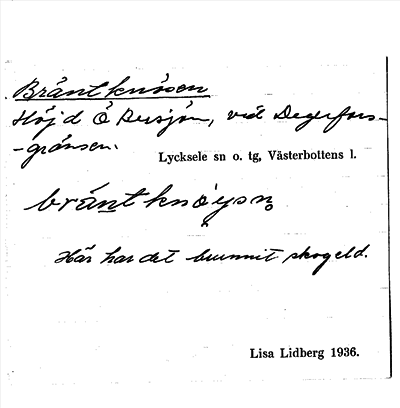 Bräntknösen
Höjd Ö Bersjön, vid Degerfors-
-gränsen.
Lycksele sn o. tg, Västerbottens l.
bräntknöysn̥
Här har det brunnit skogeld.
Lisa Lidberg 1936.